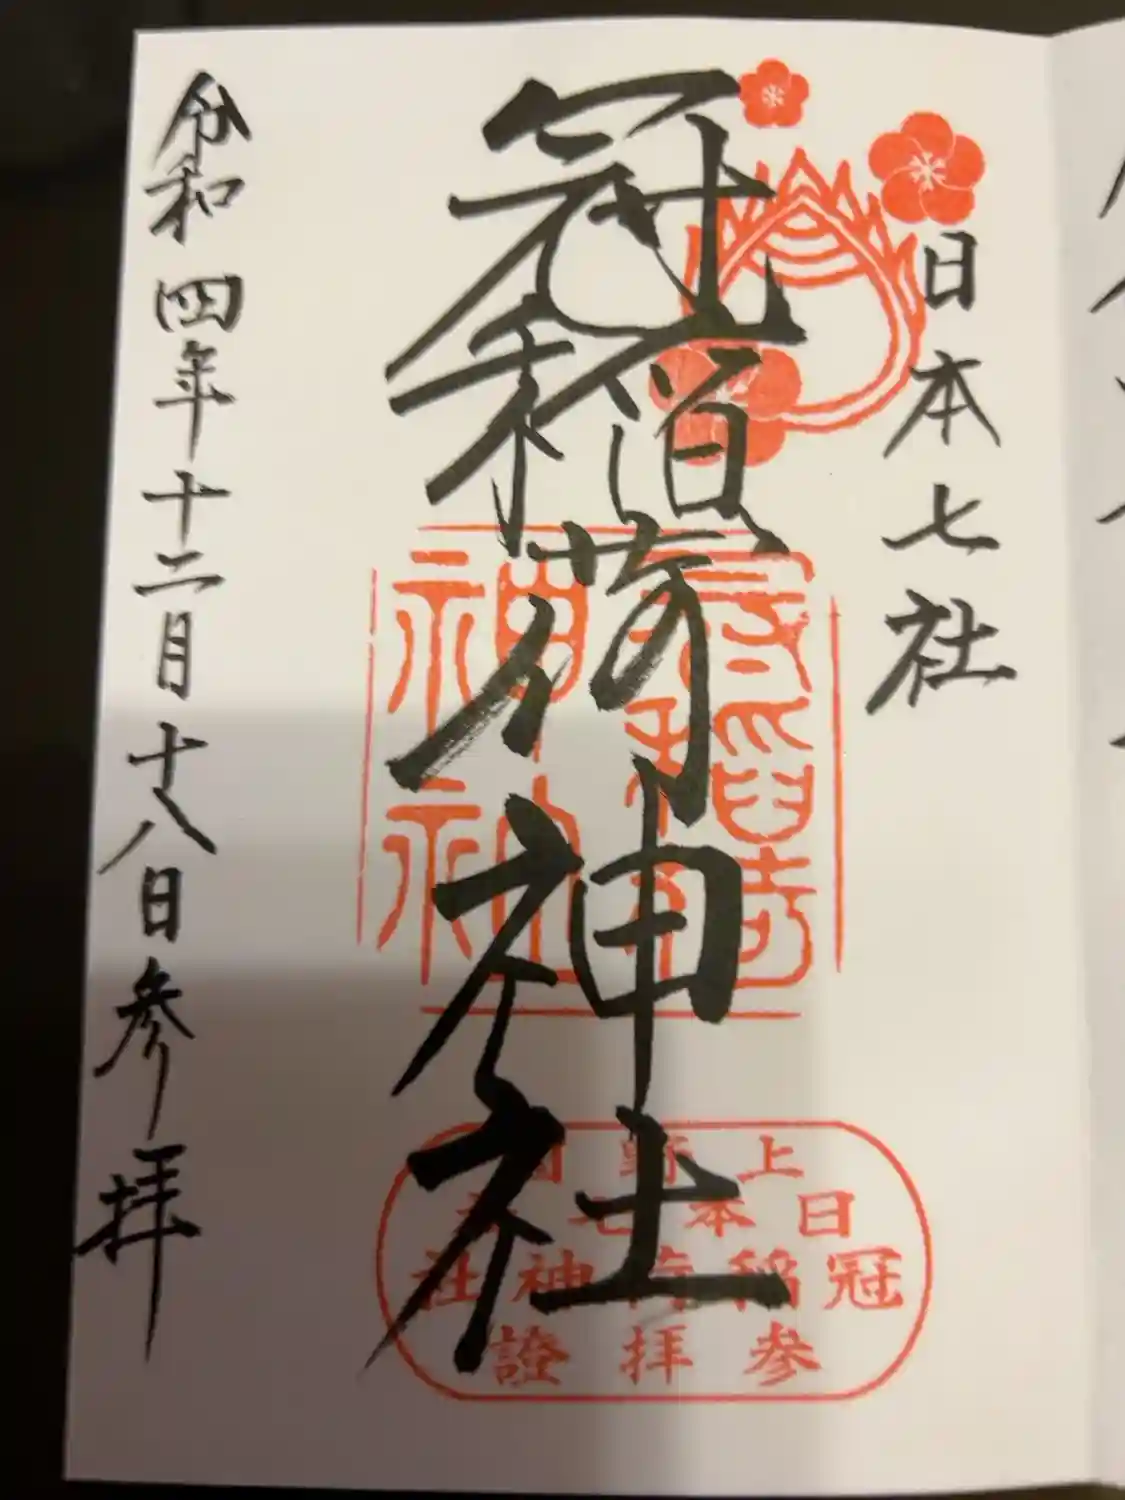 日本七社
冠稲荷神社
令和四年十二月十八日参拝
冠稲荷神社
上野国
日本七社
冠稲荷神社
参拝證